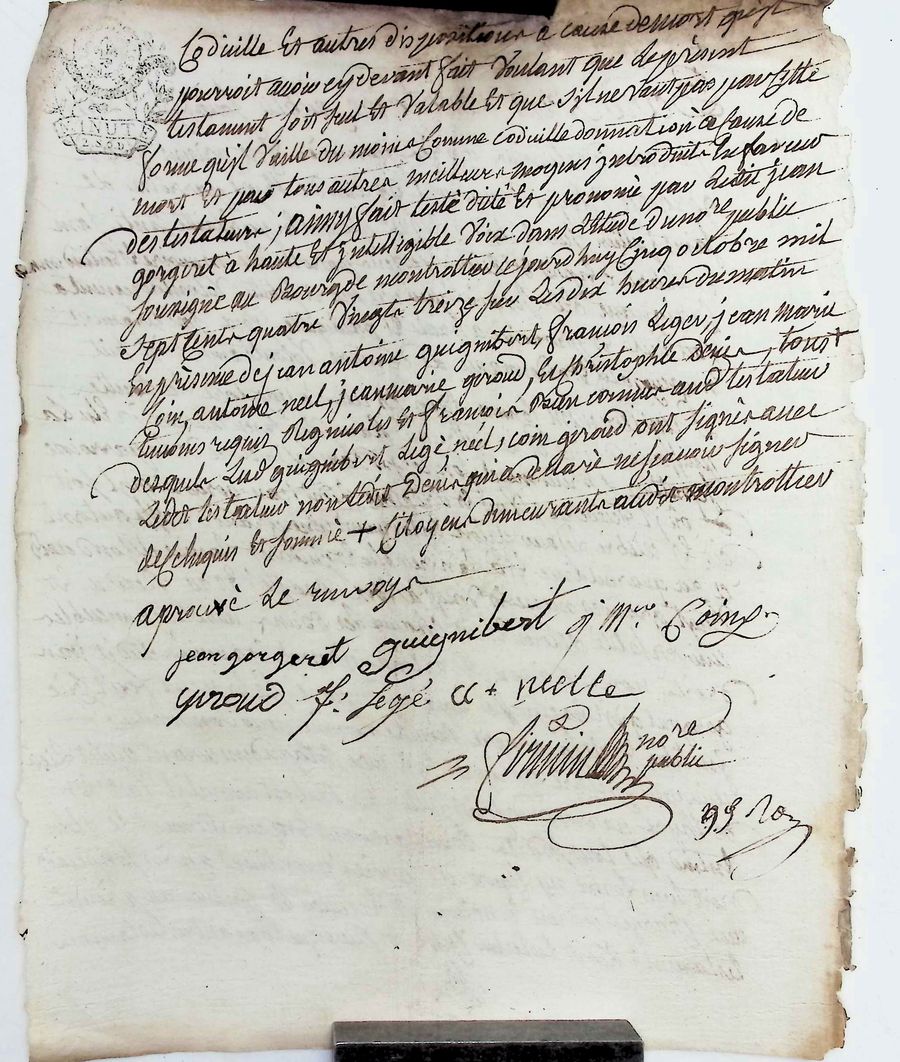 MINUT
Codicille Et autres dispositions a cause de mort qu'il
pourroit avoir cy devant fait Voulant que Le présent
testament soit seul Et Valable Et que s'il ne Vaut pas par cette
forme qu'il Vaille du moins Comme codicille donnation à Cause de
mort Et pour tous autres meilleurs moyens introduits En faveur
des testateurs, ainsy fait testé dicté Et prononcé par Ledit jean
gorgeret à haute Et intelligible Voix dans L'étude du no.re public
soussigné au Bourg de montrottier ce jourd'huy Cinq octobre mil
sept Cents quatre Vingts treize sur Les dix heures du matin
En présence de jean antoine guignibert, françois Leger, jean marie
Coin, antoine néel, jean marie giroud, Et Christophle Denis, tous +
témoins requis Regnicoles Et françois Bien connus aud testateur
desquels Lesd guignibert Légé néel, coin giroud ont signés avec
Ledit testateur non Ledit Denis qui a declaré ne sçavoir signer
de Ce Enquis Et sommé + Citoyens demeurants audit montrottier
aprouvé Le renvoy
jean gorgeret guignibert j M Coing
giroud f. legé a + neelle
no re
public